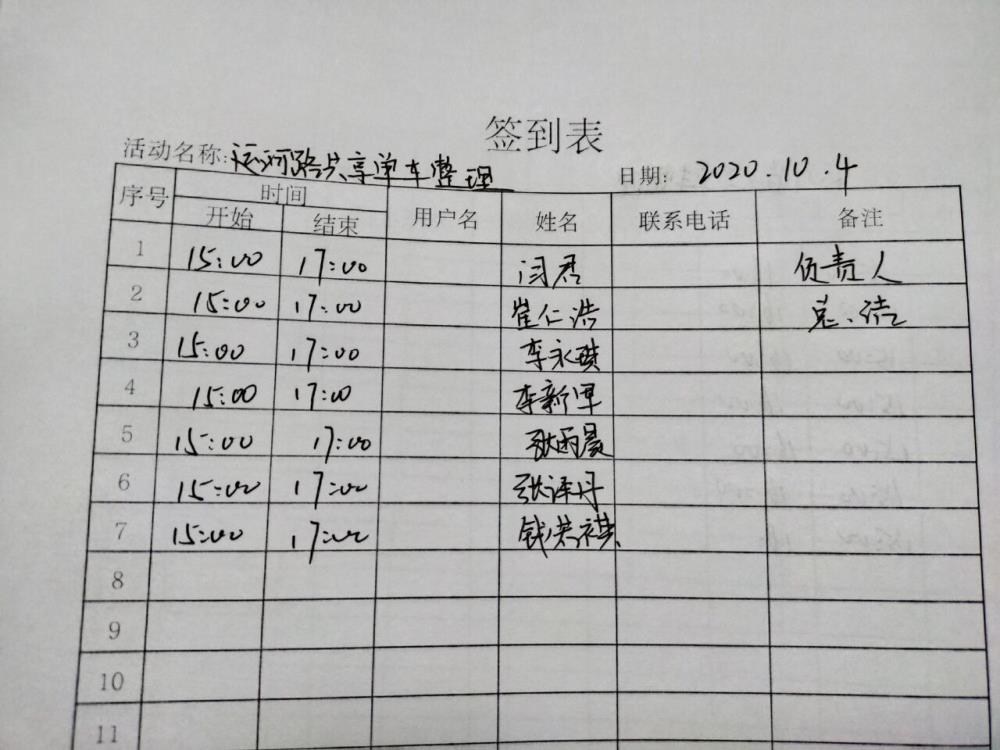 签到表
活动名称:运河路共享单车整理 日期: 2020.10.4
序号 时间 用户名 姓名 联系电话 备注
开始 结束
1 15:00 17:00 闫君 负责人
2 15:00 17:00 崔仁浩 总结
3 15:00 17:00 李永琪
4 15:00 17:00 李新军
5 15:00 17:00 张雨晨
6 15:00 17:00 张泽丹
7 15:00 17:00 钱若祺
8
9
10
11